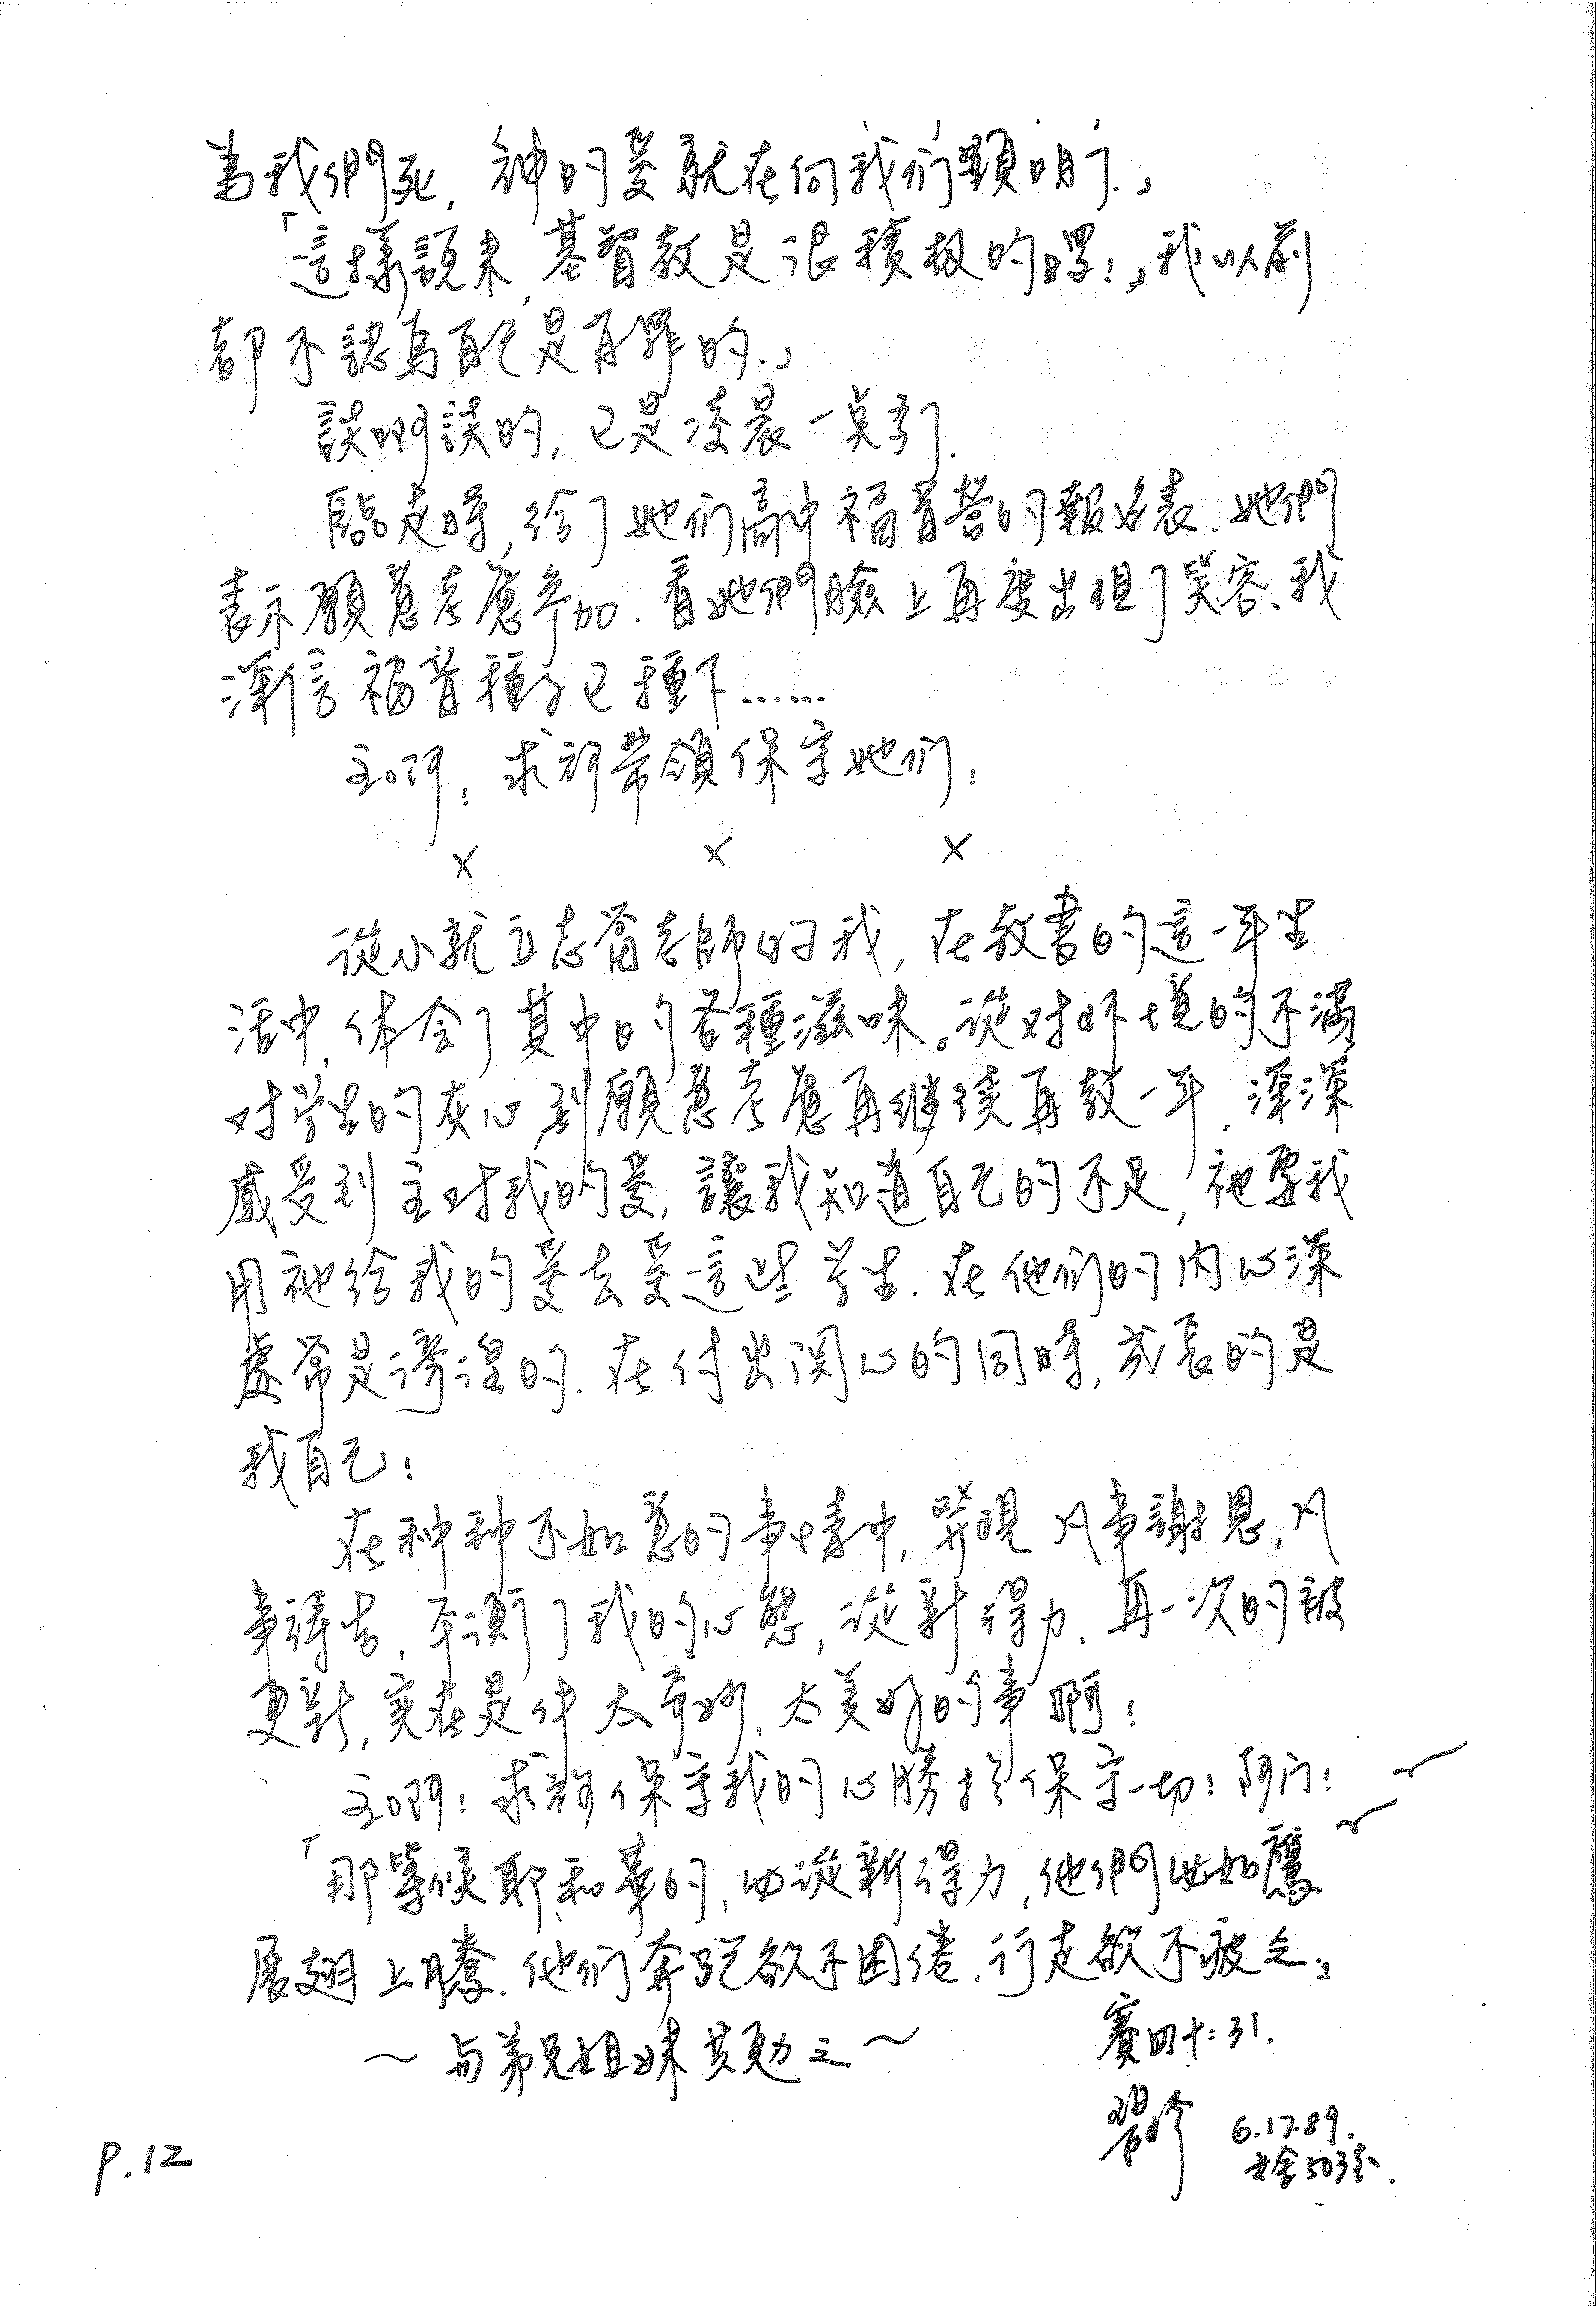 為我們死，神的愛就在向我们顯明了.」
「這樣說來，基督教是很積极的囉!」我以前
都不認為自己是有罪的.」
談啊談的，已是淩晨一点了.
臨走時，给了她们高中福音營的報名表.她們
表示願意考慮參加.看她們臉上再度出现了笑容、我
深信福音種子已種下……
主啊!求祢带領保守她们!
× × ×
從小就立志當老師的我，在教書的這一年生
活中，体会了其中的各種滋味。從对环境的不滿，
对学生的灰心，到願意考慮再继续再教一年，深深
感受到主对我的愛，讓我知道自己的不足，祂要我
用祂给我的愛去愛這些学生.在他们的内心深
處常是徬徨的.在付出関心的同時，成長的是
我自己!
在种种不如意的事情中，發現凡事謝恩，凡
事禱告，平衡了我的心態，從新得力.再一次的被
更新，实在是件太奇妙、太美好的事啊!
主啊!求祢保守我的心勝於保守一切!阿们!
「那等候耶和華的，必從新得力，他們必如鷹
展翅上騰.他们奔跑欲不困倦.行走欲不疲乏.」
～与弟兄姐妹共勉之～ 賽四十:31.
6.17.89.
P.12 女舍503室.